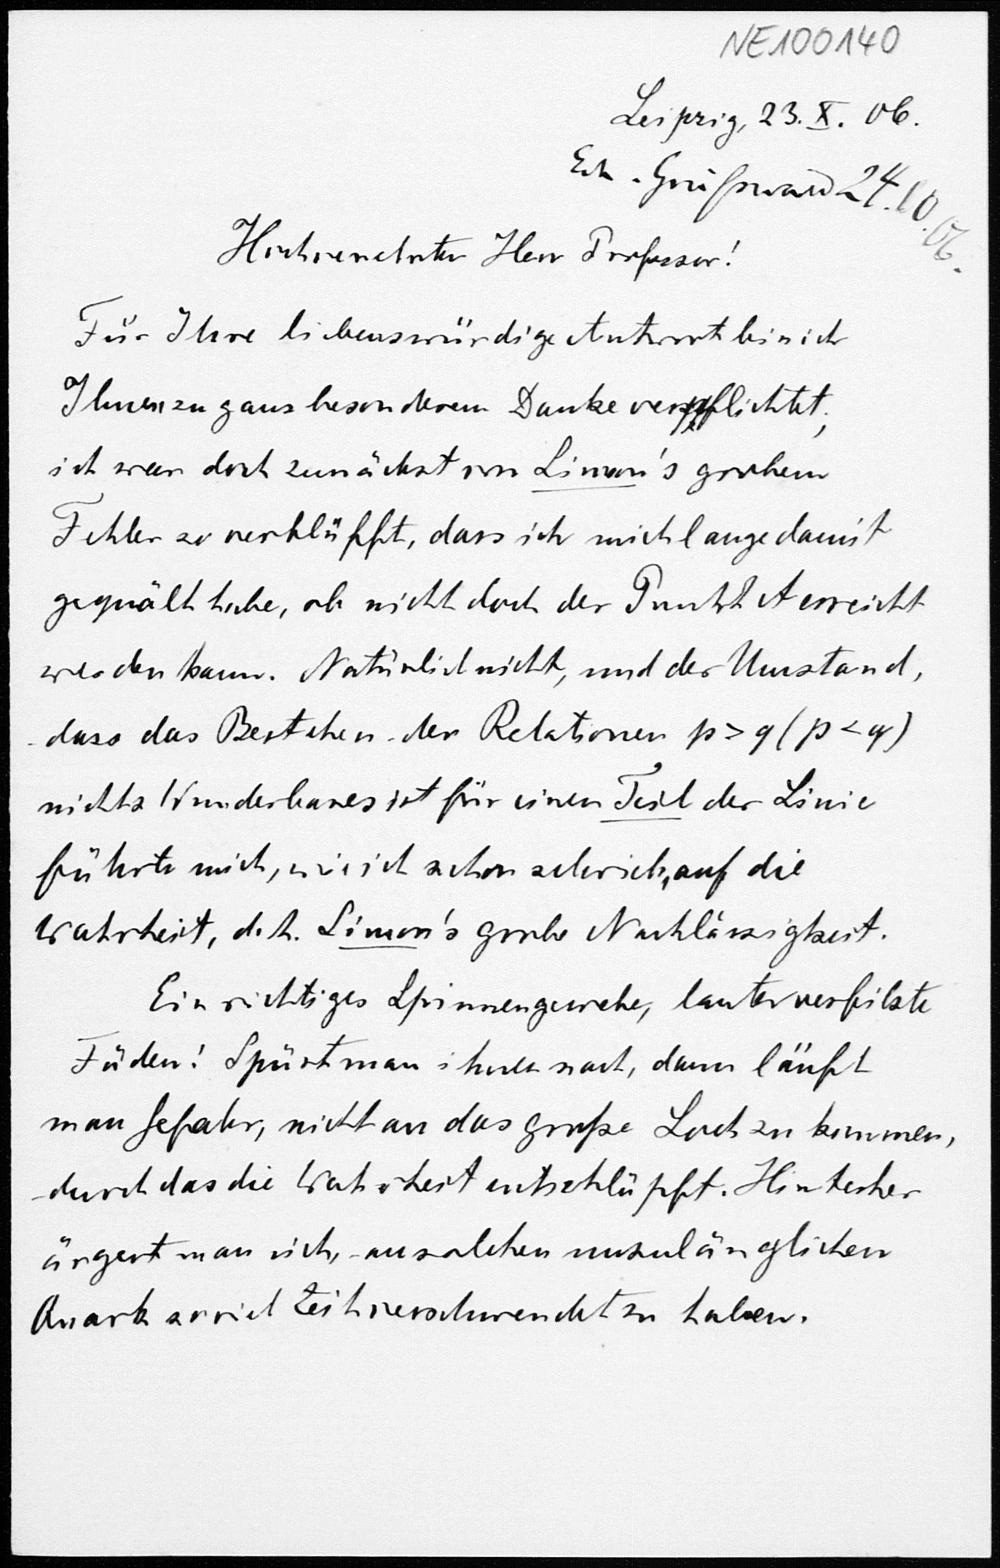 NE100140
Leipzig, 23. X. 06.
Greifswald 24.10.06.
Hochverehrter Herr Professor!
Für Ihre liebenswürdige Antwort bin ich
Ihnen zu ganz besonderem Danke verpflichtet;
ich war doch zunächst von Simon's grobem
Fehler so verblüfft, dass ich mich lange damit
gequält habe, ob nicht doch der Punkt A erreicht
werden kann. Natürlich nicht, und der Umstand,
dass das Bestehen der Relationen p > q (p < q)
nichts Wunderbares ist für einen Teil der Linie
führte mich, wie ich schon schrieb, auf die
Wahrheit, d.h. Simon's grobe Nachlässigkeit.
Ein richtiges Spinnengewebe, lauter verfilzte
Fäden! Spürt man ihnen nach, dann läuft
man Gefahr, nicht an das große Loch zu kommen,
durch das die Wahrheit entschlüpft. Hinterher
ärgert man sich, an solchen unzulänglichen
Quark soviel Zeit verschwendet zu haben.